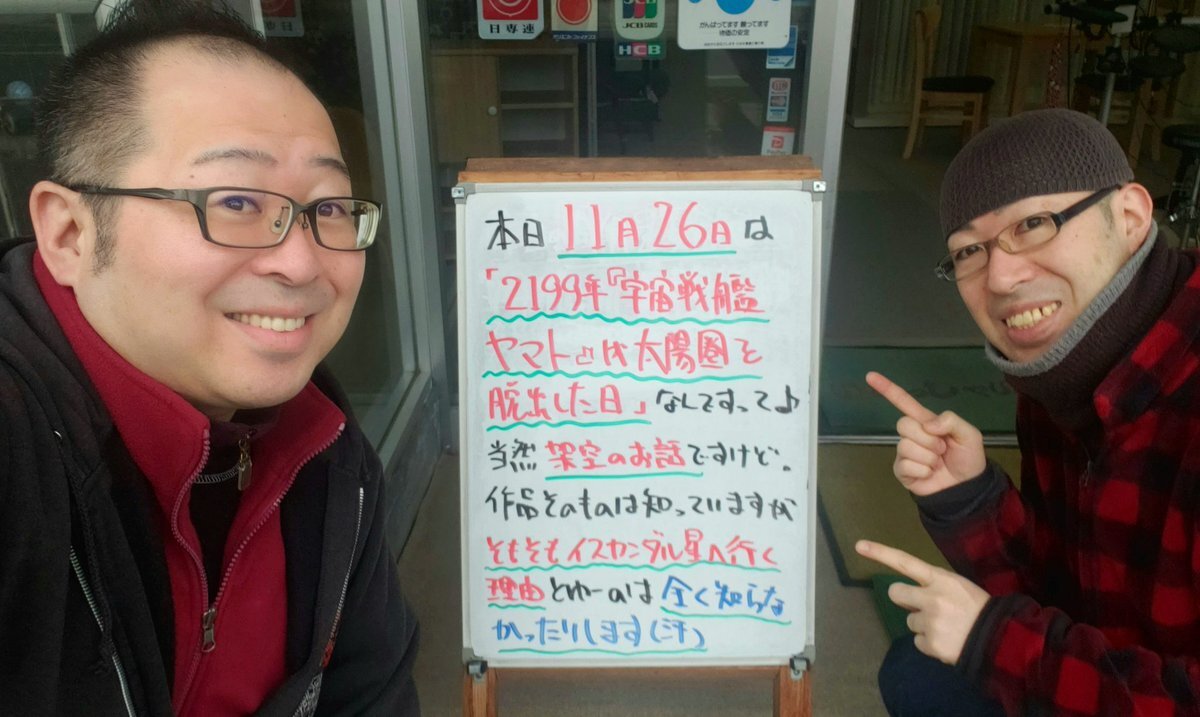 日専連
JCB CARDS
HCB
がんばってます 願ってます
物価の安定
本日 11月26日は
「2199年『宇宙戦艦
ヤマト』は太陽圏を
脱出した日」なんですって♪
当然 架空のお話ですけど。
作品そのものは知っていますが
そもそもイスカンダル星へ行く
理由とゆーのは 全く知らな
かったりします(汗)